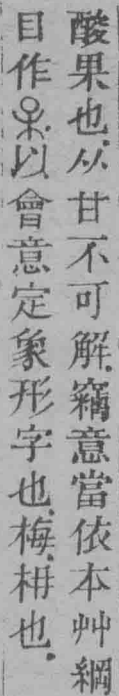 酸果也.从甘不可解.竊意當依本艸綱
目作𣎼.以會意定象形字也.梅.枏也.